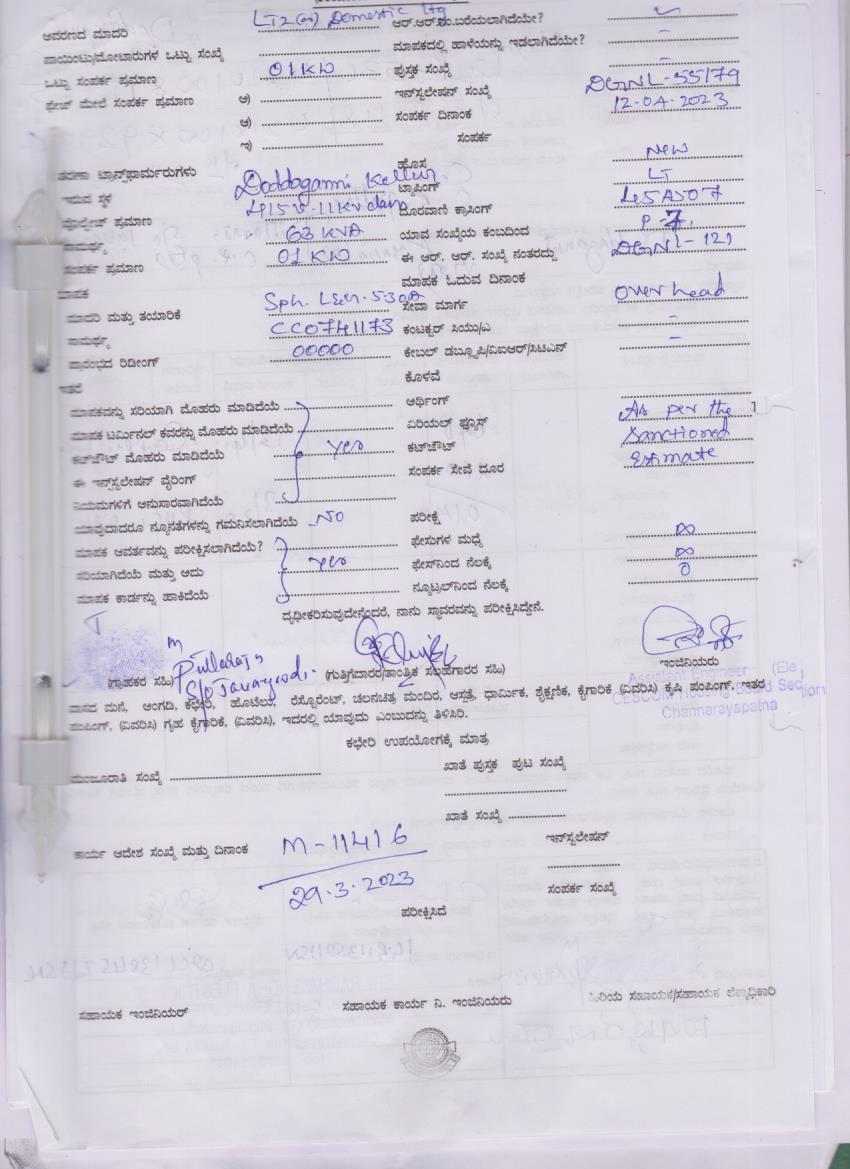 ಆವರಣದ ಮಾದರಿ LT2(a) Domestic Ltg ಆರ್.ಆರ್.ನಂ.ಬರೆಯಲಾಗಿದೆಯೇ?
ಪಾಯಿಂಟು/ಮೋಟಾರುಗಳ ಒಟ್ಟು ಸಂಖ್ಯೆ ಮಾಪಕದಲ್ಲಿ ಹಾಳೆಯನ್ನು ಇಡಲಾಗಿದೆಯೇ? -
ಒಟ್ಟು ಸಂಪರ್ಕ ಪ್ರಮಾಣ 01KW ಪುಸ್ತಕ ಸಂಖ್ಯೆ -
ಫೇಜ್ ಮೇಲೆ ಸಂಪರ್ಕ ಪ್ರಮಾಣ ಅ) ಇನ್‌ಸ್ಟಲೇಷನ್ ಸಂಖ್ಯೆ DGNL-55179
ಆ) ಸಂಪರ್ಕ ದಿನಾಂಕ 12-04-2023
ಇ) ಸಂಪರ್ಕ
ತರಣಾ ಟ್ರಾನ್ಸ್‌ಫಾರ್ಮರುಗಳು ಹೊಸ New
ಇರುವ ಸ್ಥಳ Doddaganni Kellur ಟ್ಯಾಪಿಂಗ್ LT
ವೋಲ್ಟೇಜ್ ಪ್ರಮಾಣ 415V-11KV ದೂರವಾಣಿ ಕ್ರಾಸಿಂಗ್ 45A507
ಸಾಮರ್ಥ್ಯ 63 KVA ಯಾವ ಸಂಖ್ಯೆಯ ಕಂಬದಿಂದ P-7
ಸಂಪರ್ಕ ಪ್ರಮಾಣ 01KW ಈ ಆರ್. ಆರ್. ಸಂಖ್ಯೆ ನಂತರದ್ದು DGNL-121
ಮಾಪಕ ಮಾಪಕ ಓದುವ ದಿನಾಂಕ
ಮಾದರಿ ಮತ್ತು ತಯಾರಿಕೆ Sph. L&T 5-30A ಸೇವಾ ಮಾರ್ಗ over head
ಸಾಮರ್ಥ್ಯ CC0741173 ಕಂಟಕ್ಟರ್ ಸಿಯು/ಎ -
ಪ್ರಾರಂಭದ ರಿಡೀಂಗ್ 00000 ಕೇಬಲ್ ಡಬ್ಲ್ಯೂಪಿ/ವಿಐಆರ್/ಸಿಟಿಎನ್ -
ಇತರೆ ಕೊಳವೆ
ಮಾಪಕವನ್ನು ಸರಿಯಾಗಿ ಮೊಹರು ಮಾಡಿದೆಯೆ ಅರ್ಥಿಂಗ್
ಮಾಪಕ ಟರ್ಮಿನಲ್ ಕವರನ್ನು ಮೊಹರು ಮಾಡಿದೆಯೆ ಏರಿಯಲ್ ಫ್ಯೂಸ್ As per the 1
ಕಟ್‌ಔಟ್ ಮೊಹರು ಮಾಡಿದೆಯೆ yes ಕಟ್‌ಔಟ್ Sanctioned
ಈ ಇನ್‌ಸ್ಟಲೇಷನ್ ವೈರಿಂಗ್ ಸಂಪರ್ಕ ಸೇವೆ ದೂರ Estimate
ನಿಯಮಗಳಿಗೆ ಅನುಸಾರವಾಗಿದೆಯೆ
ಯಾವುದಾದರೂ ನ್ಯೂನತೆಗಳನ್ನು ಗಮನಿಸಲಾಗಿದೆಯೆ NO ಪರೀಕ್ಷೆ
ಮಾಪಕ ಆವರ್ತವನ್ನು ಪರೀಕ್ಷಿಸಲಾಗಿದೆಯೆ? ಫೇಸುಗಳ ಮಧ್ಯೆ ∞
ಸರಿಯಾಗಿದೆಯೆ ಮತ್ತು ಅದು yes ಫೇಸ್‌ನಿಂದ ನೆಲಕ್ಕೆ ∞
ಮಾಪಕ ಕಾರ್ಡನ್ನು ಹಾಕಿದೆಯೆ ನ್ಯೂಟ್ರಲ್‌ನಿಂದ ನೆಲಕ್ಕೆ 0
ದೃಢೀಕರಿಸುವುದೇನೆಂದರೆ, ನಾನು ಸ್ಥಾವರವನ್ನು ಪರೀಕ್ಷಿಸಿದ್ದೇನೆ.
(ಗ್ರಾಹಕರ ಸಹಿ) (ಗುತ್ತಿಗೆದಾರರ/ತಾಂತ್ರಿಕ ಸಲಹೆಗಾರರ ಸಹಿ) ಇಂಜಿನಿಯರು
Assistant Engineer (Ele)
CESCOM Housing Board Section
Channarayapatna
ವಾಸದ ಮನೆ, ಅಂಗಡಿ, ಕಛೇರಿ, ಹೊಟೆಲು, ರೆಸ್ಟೊರೆಂಟ್, ಚಲನಚಿತ್ರ ಮಂದಿರ, ಆಸ್ಪತ್ರೆ, ಧಾರ್ಮಿಕ, ಶೈಕ್ಷಣಿಕ, ಕೈಗಾರಿಕೆ (ವಿವರಿಸಿ) ಕೃಷಿ ಪಂಪಿಂಗ್, ಇತರ
ಪಂಪಿಂಗ್, (ವಿವರಿಸಿ) ಗೃಹ ಕೈಗಾರಿಕೆ, (ವಿವರಿಸಿ), ಇದರಲ್ಲಿ ಯಾವುದು ಎಂಬುದನ್ನು ತಿಳಿಸಿರಿ.
ಕಛೇರಿ ಉಪಯೋಗಕ್ಕೆ ಮಾತ್ರ
ಮಂಜೂರಾತಿ ಸಂಖ್ಯೆ ಖಾತೆ ಪುಸ್ತಕ ಪುಟ ಸಂಖ್ಯೆ
ಖಾತೆ ಸಂಖ್ಯೆ
ಕಾರ್ಯ ಆದೇಶ ಸಂಖ್ಯೆ ಮತ್ತು ದಿನಾಂಕ M-11416 ಇನ್‌ಸ್ಟಲೇಷನ್
29.3.2023 ಸಂಪರ್ಕ ಸಂಖ್ಯೆ
ಪರೀಕ್ಷಿಸಿದೆ
ಸಹಾಯಕ ಇಂಜಿನಿಯರ್ ಸಹಾಯಕ ಕಾರ್ಯ ನಿ. ಇಂಜಿನಿಯರು ಹಿರಿಯ ಸಹಾಯಕ/ಸಹಾಯಕ ಲೆಕ್ಕಾಧಿಕಾರಿ